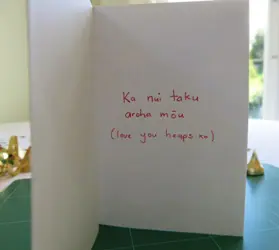 Ka nui taku
aroha mōu
(love you heaps xx)